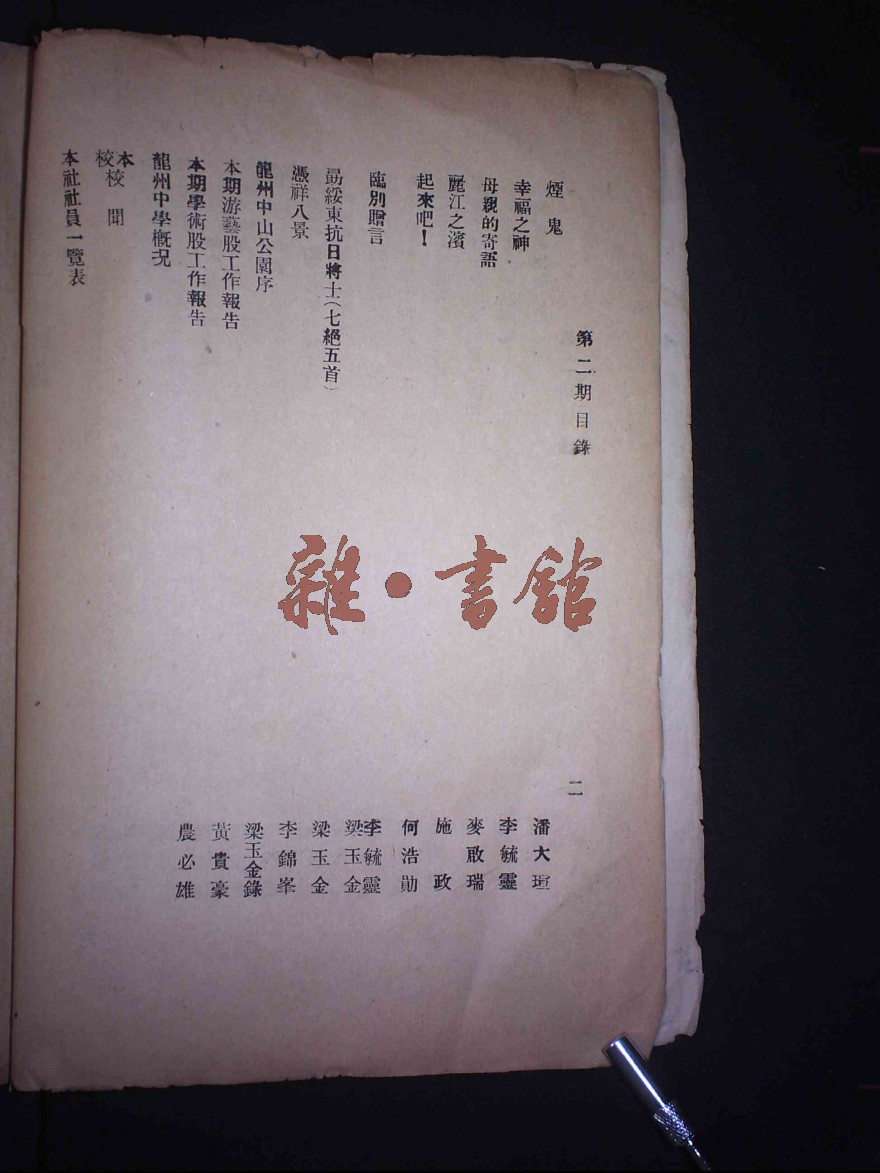 第二期目錄 二
煙鬼 潘大瑄
幸福之神 李毓靈
母親的寄語 麥啟瑞
麗江之濱 施政
起來吧！ 何浩勛
臨別贈言 李毓靈 梁玉金
勗綏東抗日將士(七絕五首) 梁玉金
憑祥八景 李錦峯
龍州中山公園序 梁玉金錄
本期游藝股工作報告 黃貴豪
本期學術股工作報告 農必雄
龍州中學概况
本校校聞
本社社員一覽表
雜·書館